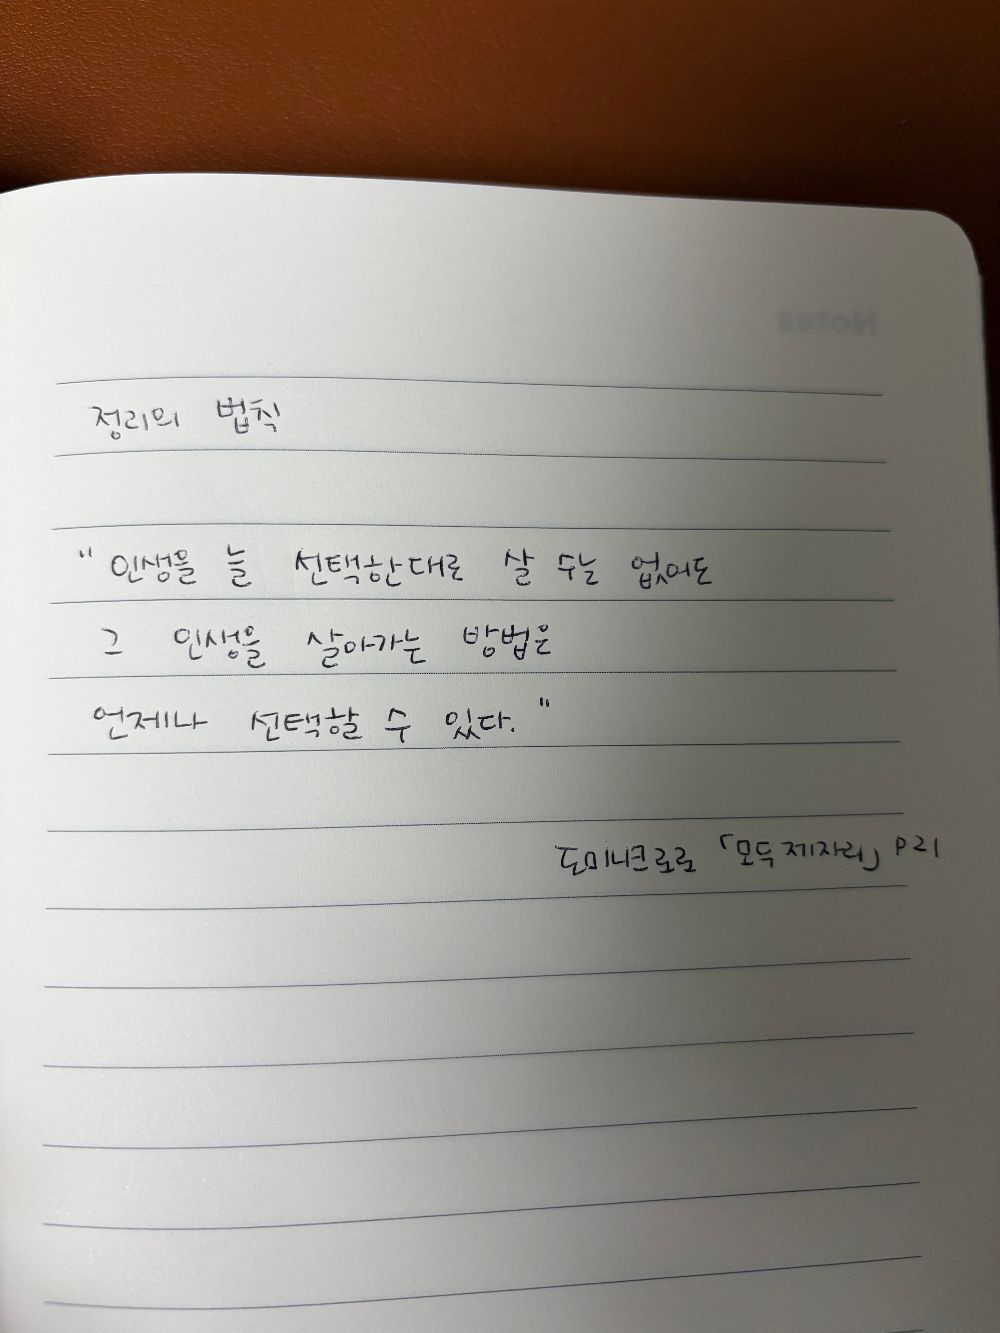 Notes
정리의 법칙
"인생을 늘 선택한대로 살 수는 없어도
그 인생을 살아가는 방법은
언제나 선택할 수 있다."
도미니크로로 「모두 제자리」 P21